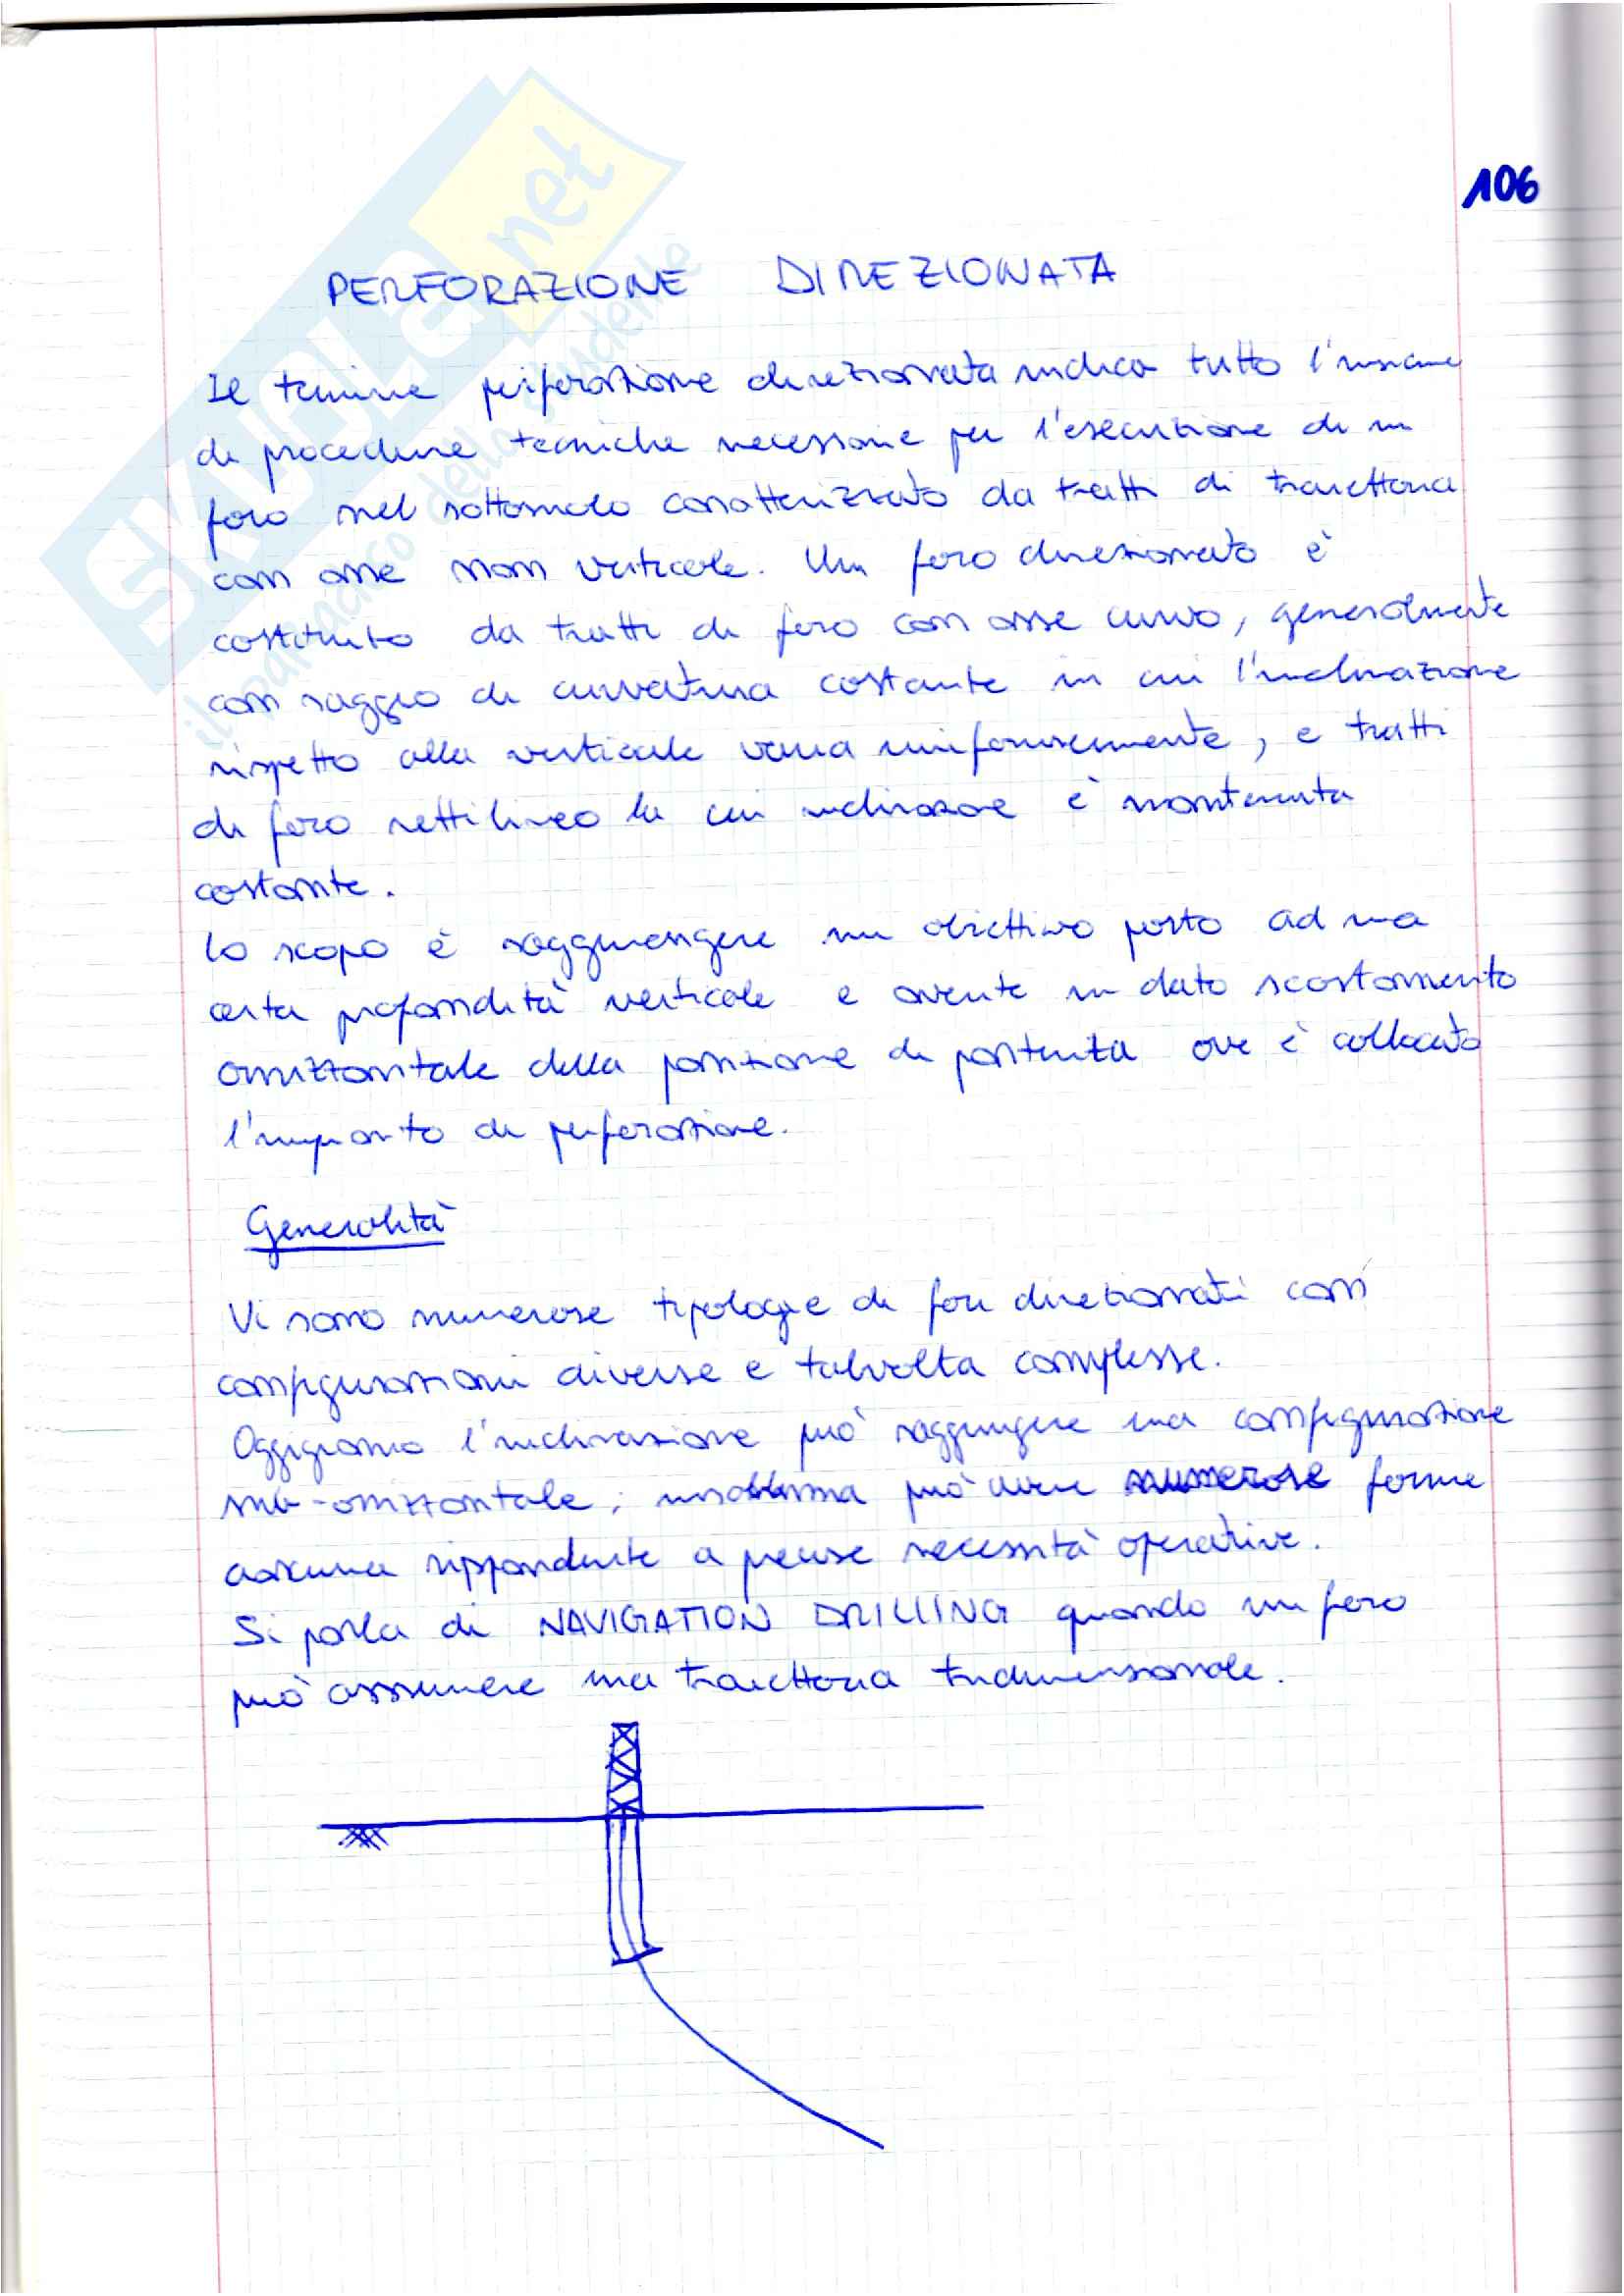 106
PERFORAZIONE DIREZIONATA
Il termine perforazione direzionata indica tutto l'insieme
di procedure tecniche necessarie per l'esecuzione di un
foro nel sottosuolo caratterizzato da tratti di traiettoria
con asse non verticale. Un foro direzionato è
costituito da tratti di foro con asse curvo, generalmente
con raggio di curvatura costante in cui l'inclinazione
rispetto alla verticale varia uniformemente, e tratti
di foro rettilineo la cui inclinazione è mantenuta
costante.
Lo scopo è raggiungere un obiettivo posto ad una
certa profondità verticale e avente un dato scostamento
orizzontale dalla posizione di partenza ove è collocato
l'impianto di perforazione.
Generalità
Vi sono numerose tipologie di fori direzionati con
configurazioni diverse e talvolta complesse.
Oggigiorno l'inclinazione può raggiungere una configurazione
sub-orizzontale; può avere numerose forme
ciascuna rispondente a precise necessità operative.
Si parla di NAVIGATION DRILLING quando un foro
può assumere una traiettoria tridimensionale.
SKUOLA.net
il paradiso dello studente